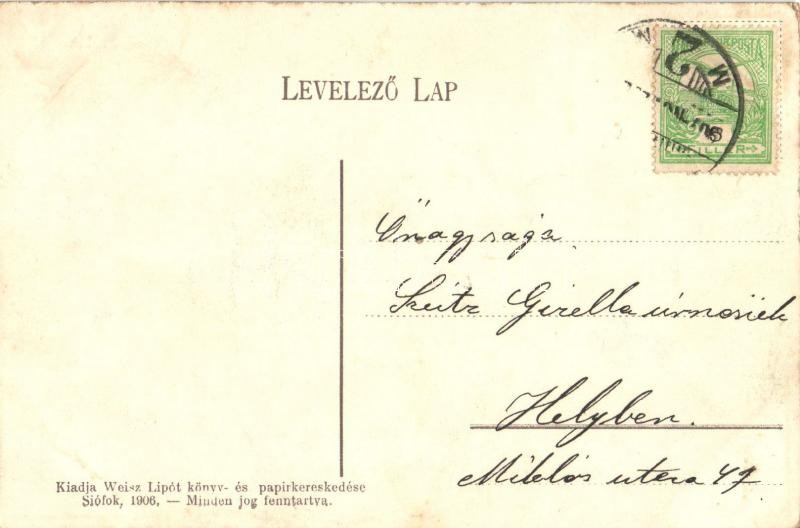 LEVELEZŐ LAP
FILLER
Őnagysága
Seitz Gizella úrnőnek
Helyben.
Miklós utca 47
Kiadja Weisz Lipót könyv- és papirkereskedése
Siófok, 1906, — Minden jog fenntartva.